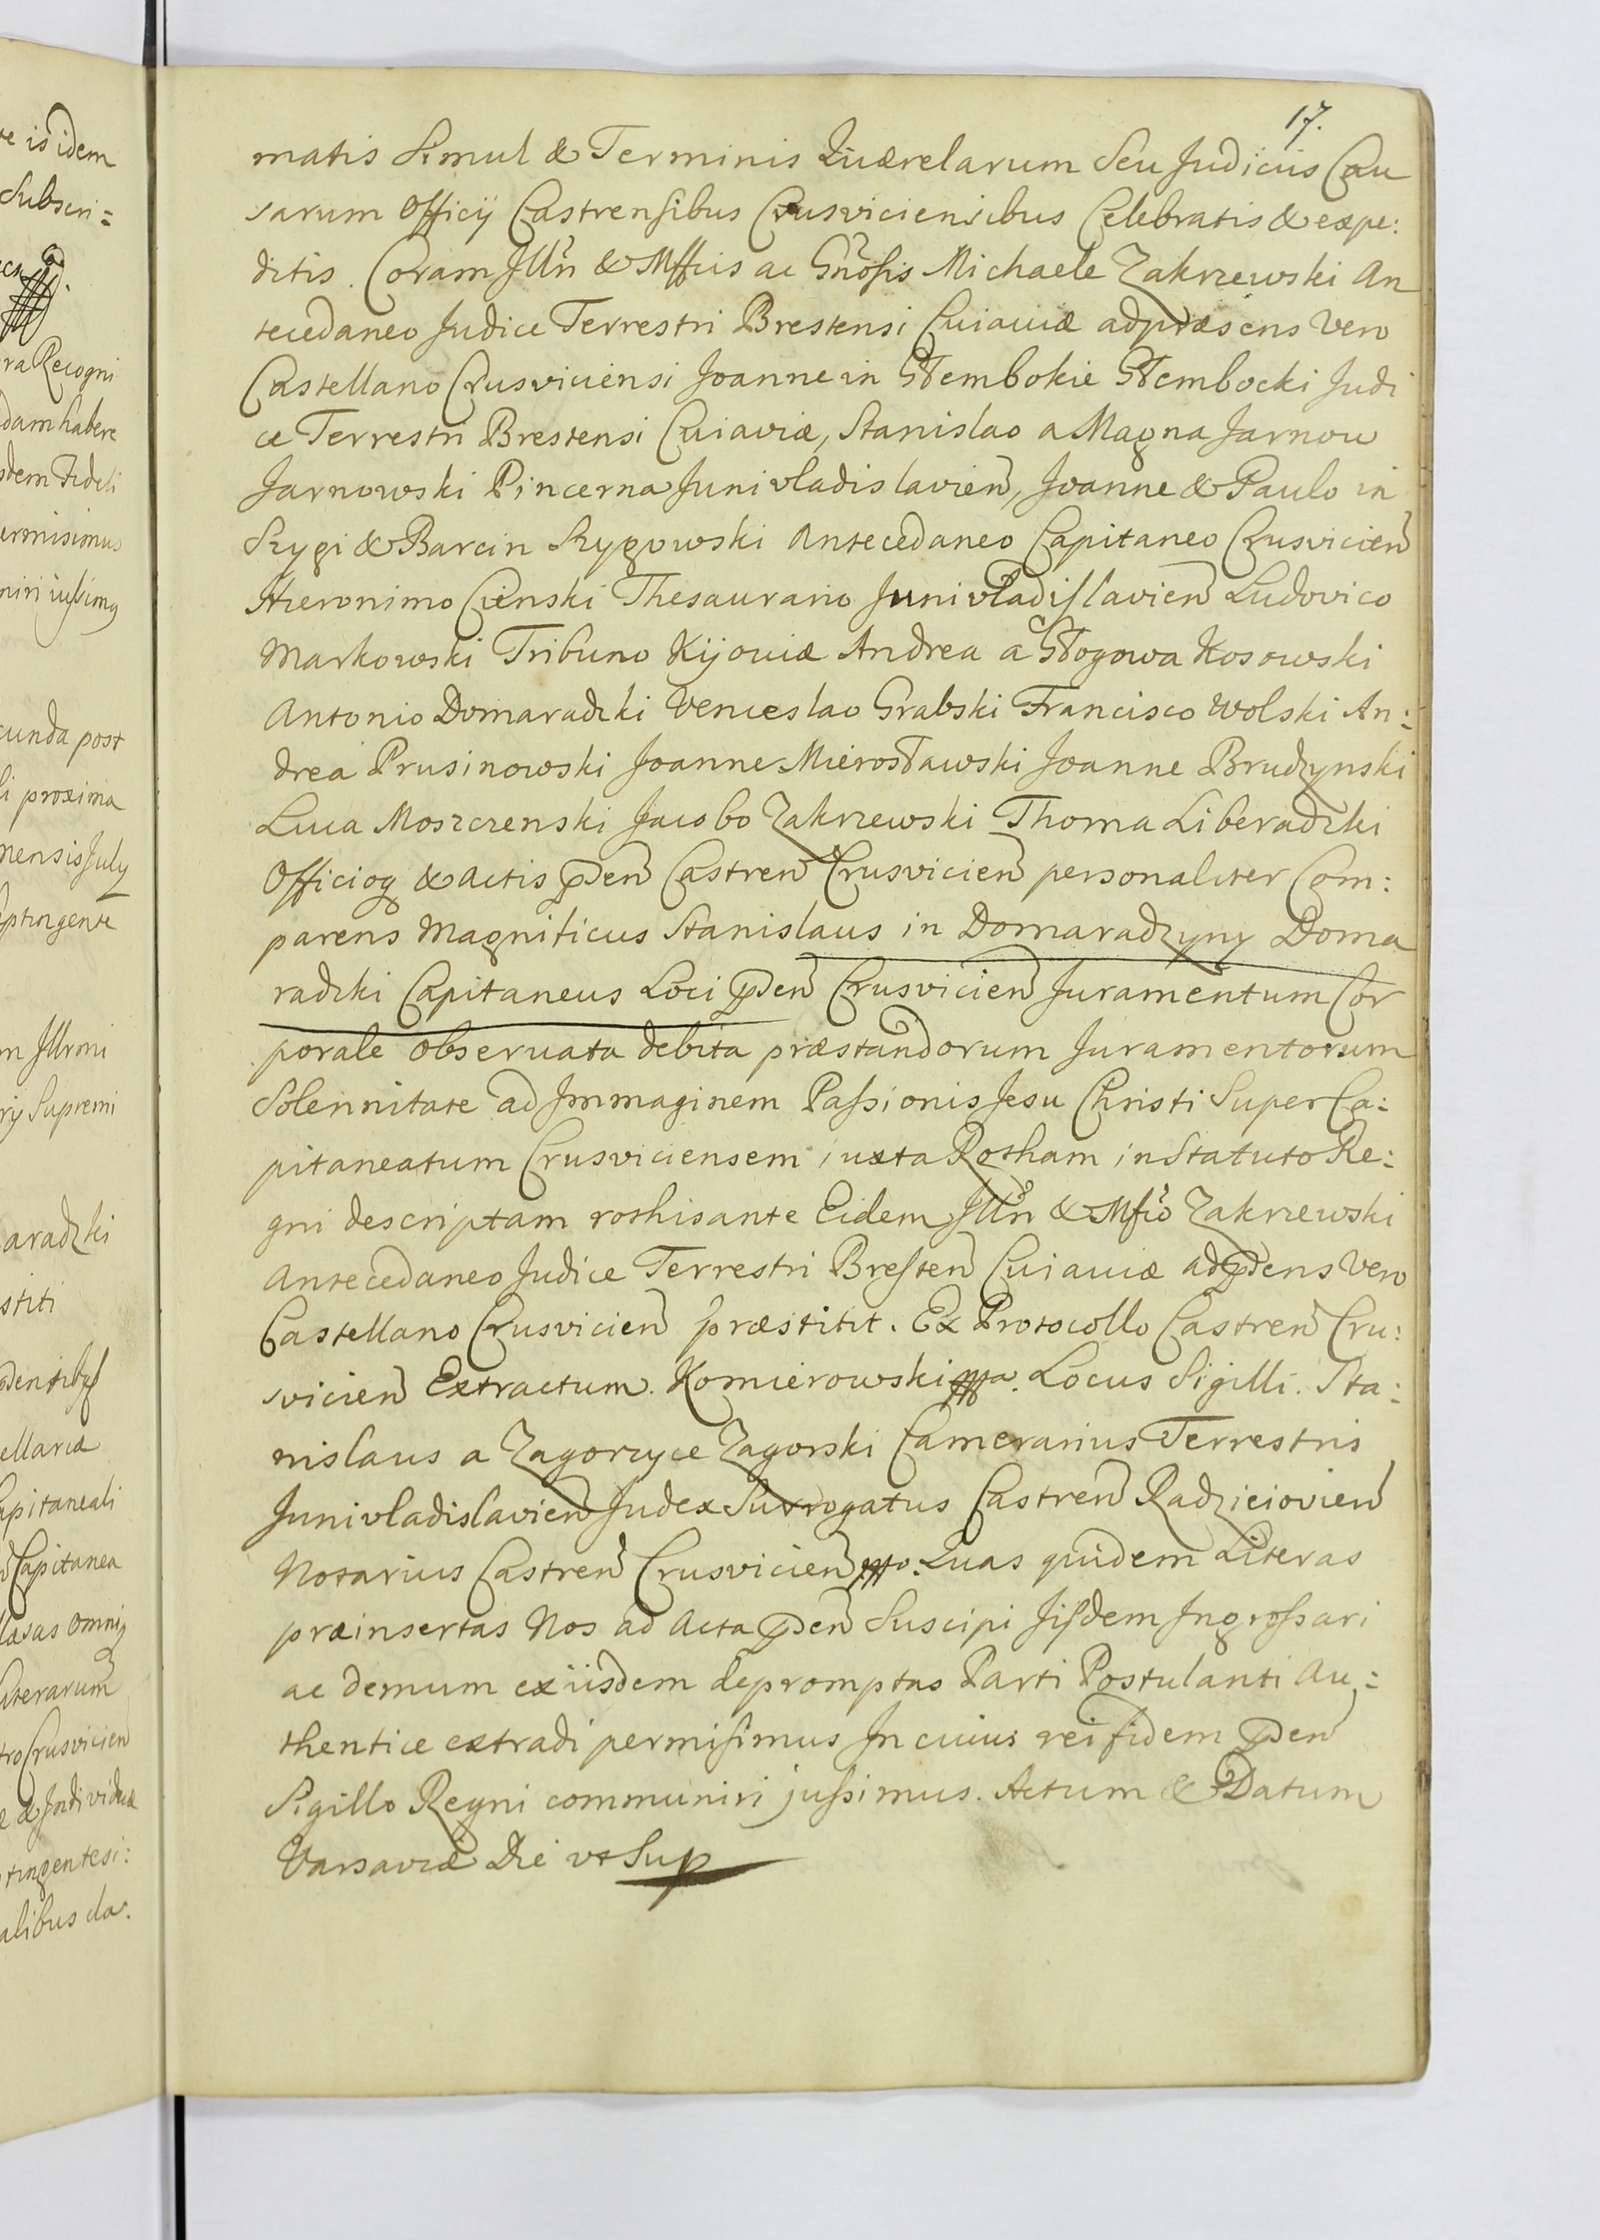 17.
matis Simul & Terminis Quærelarum Seu Judicijs Cau
sarum Officij Castrensibus Crusviciensibus Celebratis & expe:
ditis. Coram Illn & Mfficis ac Gnosis Michaele Zakrzewski An
tecedaneo Judice Terrestri Brestensi Cuiaviæ ad præsens Vero
Castellano Crusviciensi Joanne in Głembokie Głembocki Judi
ce Terrestri Brestensi Cuiaviæ, Stanislao a Magna Jarnow
Jarnowski Pincerna Junivladislavien, Joanne & Paulo in
Rygi & Barcin Rygowski Antecedaneo Capitaneo Crusvicien
Hieronimo Cienski Thesaurario Junivladislavien Ludovico
Markowski Tribuno Kijoviæ Andrea a Głogowa Kosowski
Antonio Domaradzki Venceslao Grabski Francisco Wolski An:
drea Prusinowski Joanne Mierosławski Joanne Brudzynski
Luca Moszczenski Jacobo Zakrzewski Thoma Liberadzki
Officioq & Actis pden Castren Crusvicien personaliter Com:
parens Magnificus Stanislaus in Domaradzyny Doma
radzki Capitaneus Loci pden Crusvicien Juramentum Cor
porale observata debita præstandorum Juramentorum
Solennitate ad Immaginem Passionis Jesu Christi Super Ca:
pitaneatum Crusviciensem iuxta Rotham in Statuto Re:
gni descriptam rothisante Eidem Illn & Mfco Zakrzewski
Antecedaneo Judice Terrestri Bresten Cuiaviæ ad pdens Vero
Castellano Crusvicien præstitit. Ex Protocollo Castren Cru:
svicien Extractum. Komierowski mpa. Locus Sigilli. Sta:
nislaus a Zagorzyce Zagorski Camerarius Terrestris
Junivladislavien Judex Surrogatus Castren Radzieiovien
Notarius Castren Crusvicien mpp. Quas quidem Literas
præinsertas Nos ad Acta pden Suscipi Iisdem Ingrossari
ac demum ex iisdem depromptas Parti Postulanti Au:
thentice extradi permisimus In cuius rei fidem pden
Sigillo Regni communiri jussimus. Actum & Datum
Varsaviæ Die vt Sup